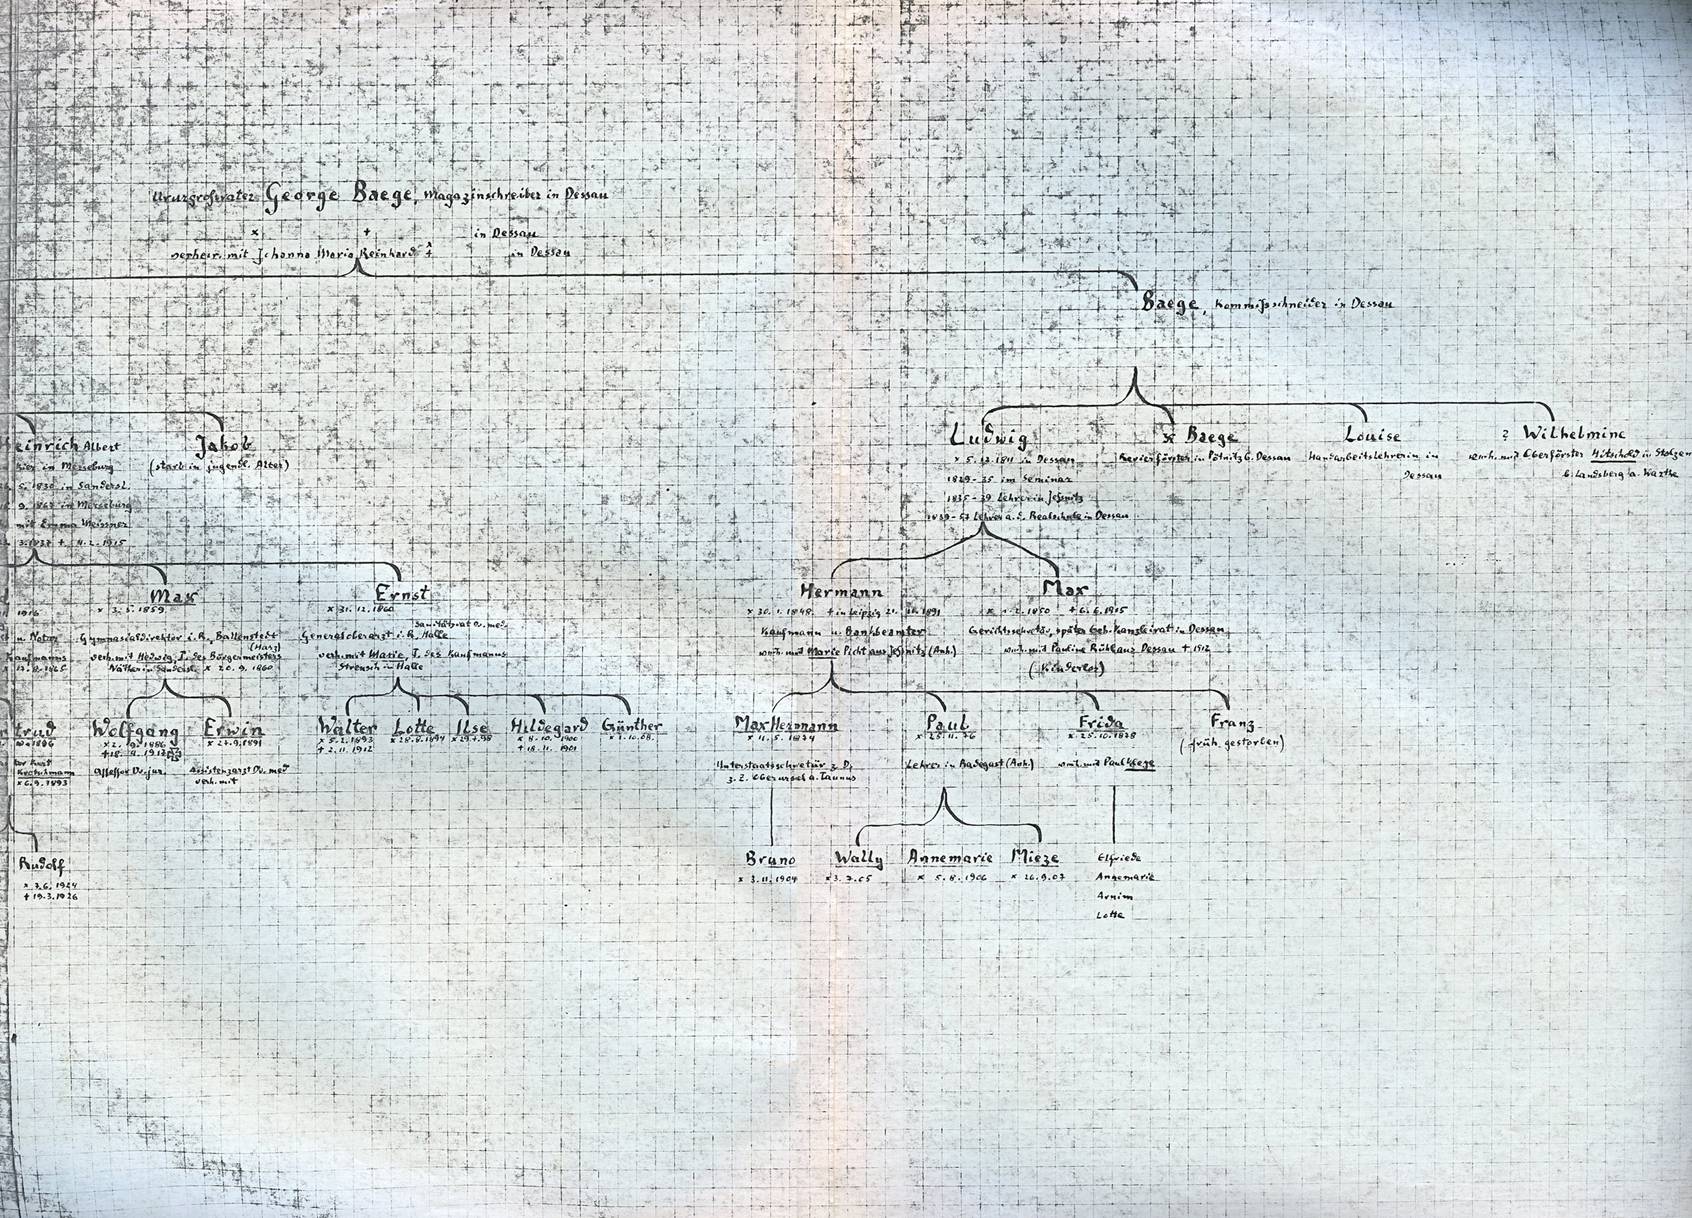 Ururgroßvater George Baege, Magazinschreiber in Dessau
x + in Dessau
verheir. mit Johanna Maria Reinhard + in Dessau
Baege, Kommißschneider in Dessau
einrich Albert
in Merseburg
5. 1830 in Sandersl.
9. 1867 in Merseburg
mit Emma Meissner
+ 4. 2. 1915
Jakob
(starb in jugendl. Alter)
Ludwig
x 5. 12. 1811 in Dessau
1829-35 im Seminar
1835-39 Lehrer in Jeßnitz
Lehrer a. d. Realschule in Dessau
x Baege
Revierförster in Pötnitz b. Dessau
Louise
Handarbeitslehrerin in
Dessau
? Wilhelmine
verh. mit Oberförster in
b. Landsberg a. Warthe
1916
u. Notar
Kaufmanns
Max
x 3. 5. 1859
Gymnasialdirektor i. R., Ballenstedt
(Harz)
verh. mit Hedwig, T. des Bürgermeisters
x 20. 9. 1860
Ernst
x 31. 12. 1860
Sanitätsrat Dr. med.
Generaloberarzt i. R., Halle
verh. mit Marie, T. des Kaufmanns
in Halle
Hermann
x 30. 1. 1848 + in Leipzig 1891
Kaufmann u. Bankbeamter
verh. mit Marie Picht aus Jeßnitz (Anh.)
Max
1850
Gerichtssekretär, später Geh. Kanzleirat in Dessau
verh. mit Pauline Rühl aus Dessau + 1912
(Kinderlos)
trud
1886
Kurt
Kretschmann
x 6. 9. 1893
Wolfgang
Assessor Dr. jur.
Erwin
x 24. 9. 1891
Assistenzarzt Dr. med
verh. mit
Walter
x 5. 2. 1893
+ 2. 11. 1912
Lotte
Ilse
Hildegard
x 8. 10. 1900
+ 18. 11. 1901
Günther
x 1. 10. 08.
Max Hermann
x 11. 5. 1874
Unterstaatssekretär z. D.
z. Z. Oberursel a. Taunus
Paul
x 25. 11. 76
Lehrer in Radegast (Anh.)
Frida
x 25. 10. 1878
verh. mit Paul
Franz
(früh. gestorben)
Rudolf
x 3. 6. 1924
+ 19. 3. 1926
Bruno
x 3. 11. 1904
Wally
x 3. 7. 05
Annemarie
x 5. 8. 1906
Mieze
x 26. 9. 07
Elfriede
Annemarie
Armin
Lotte